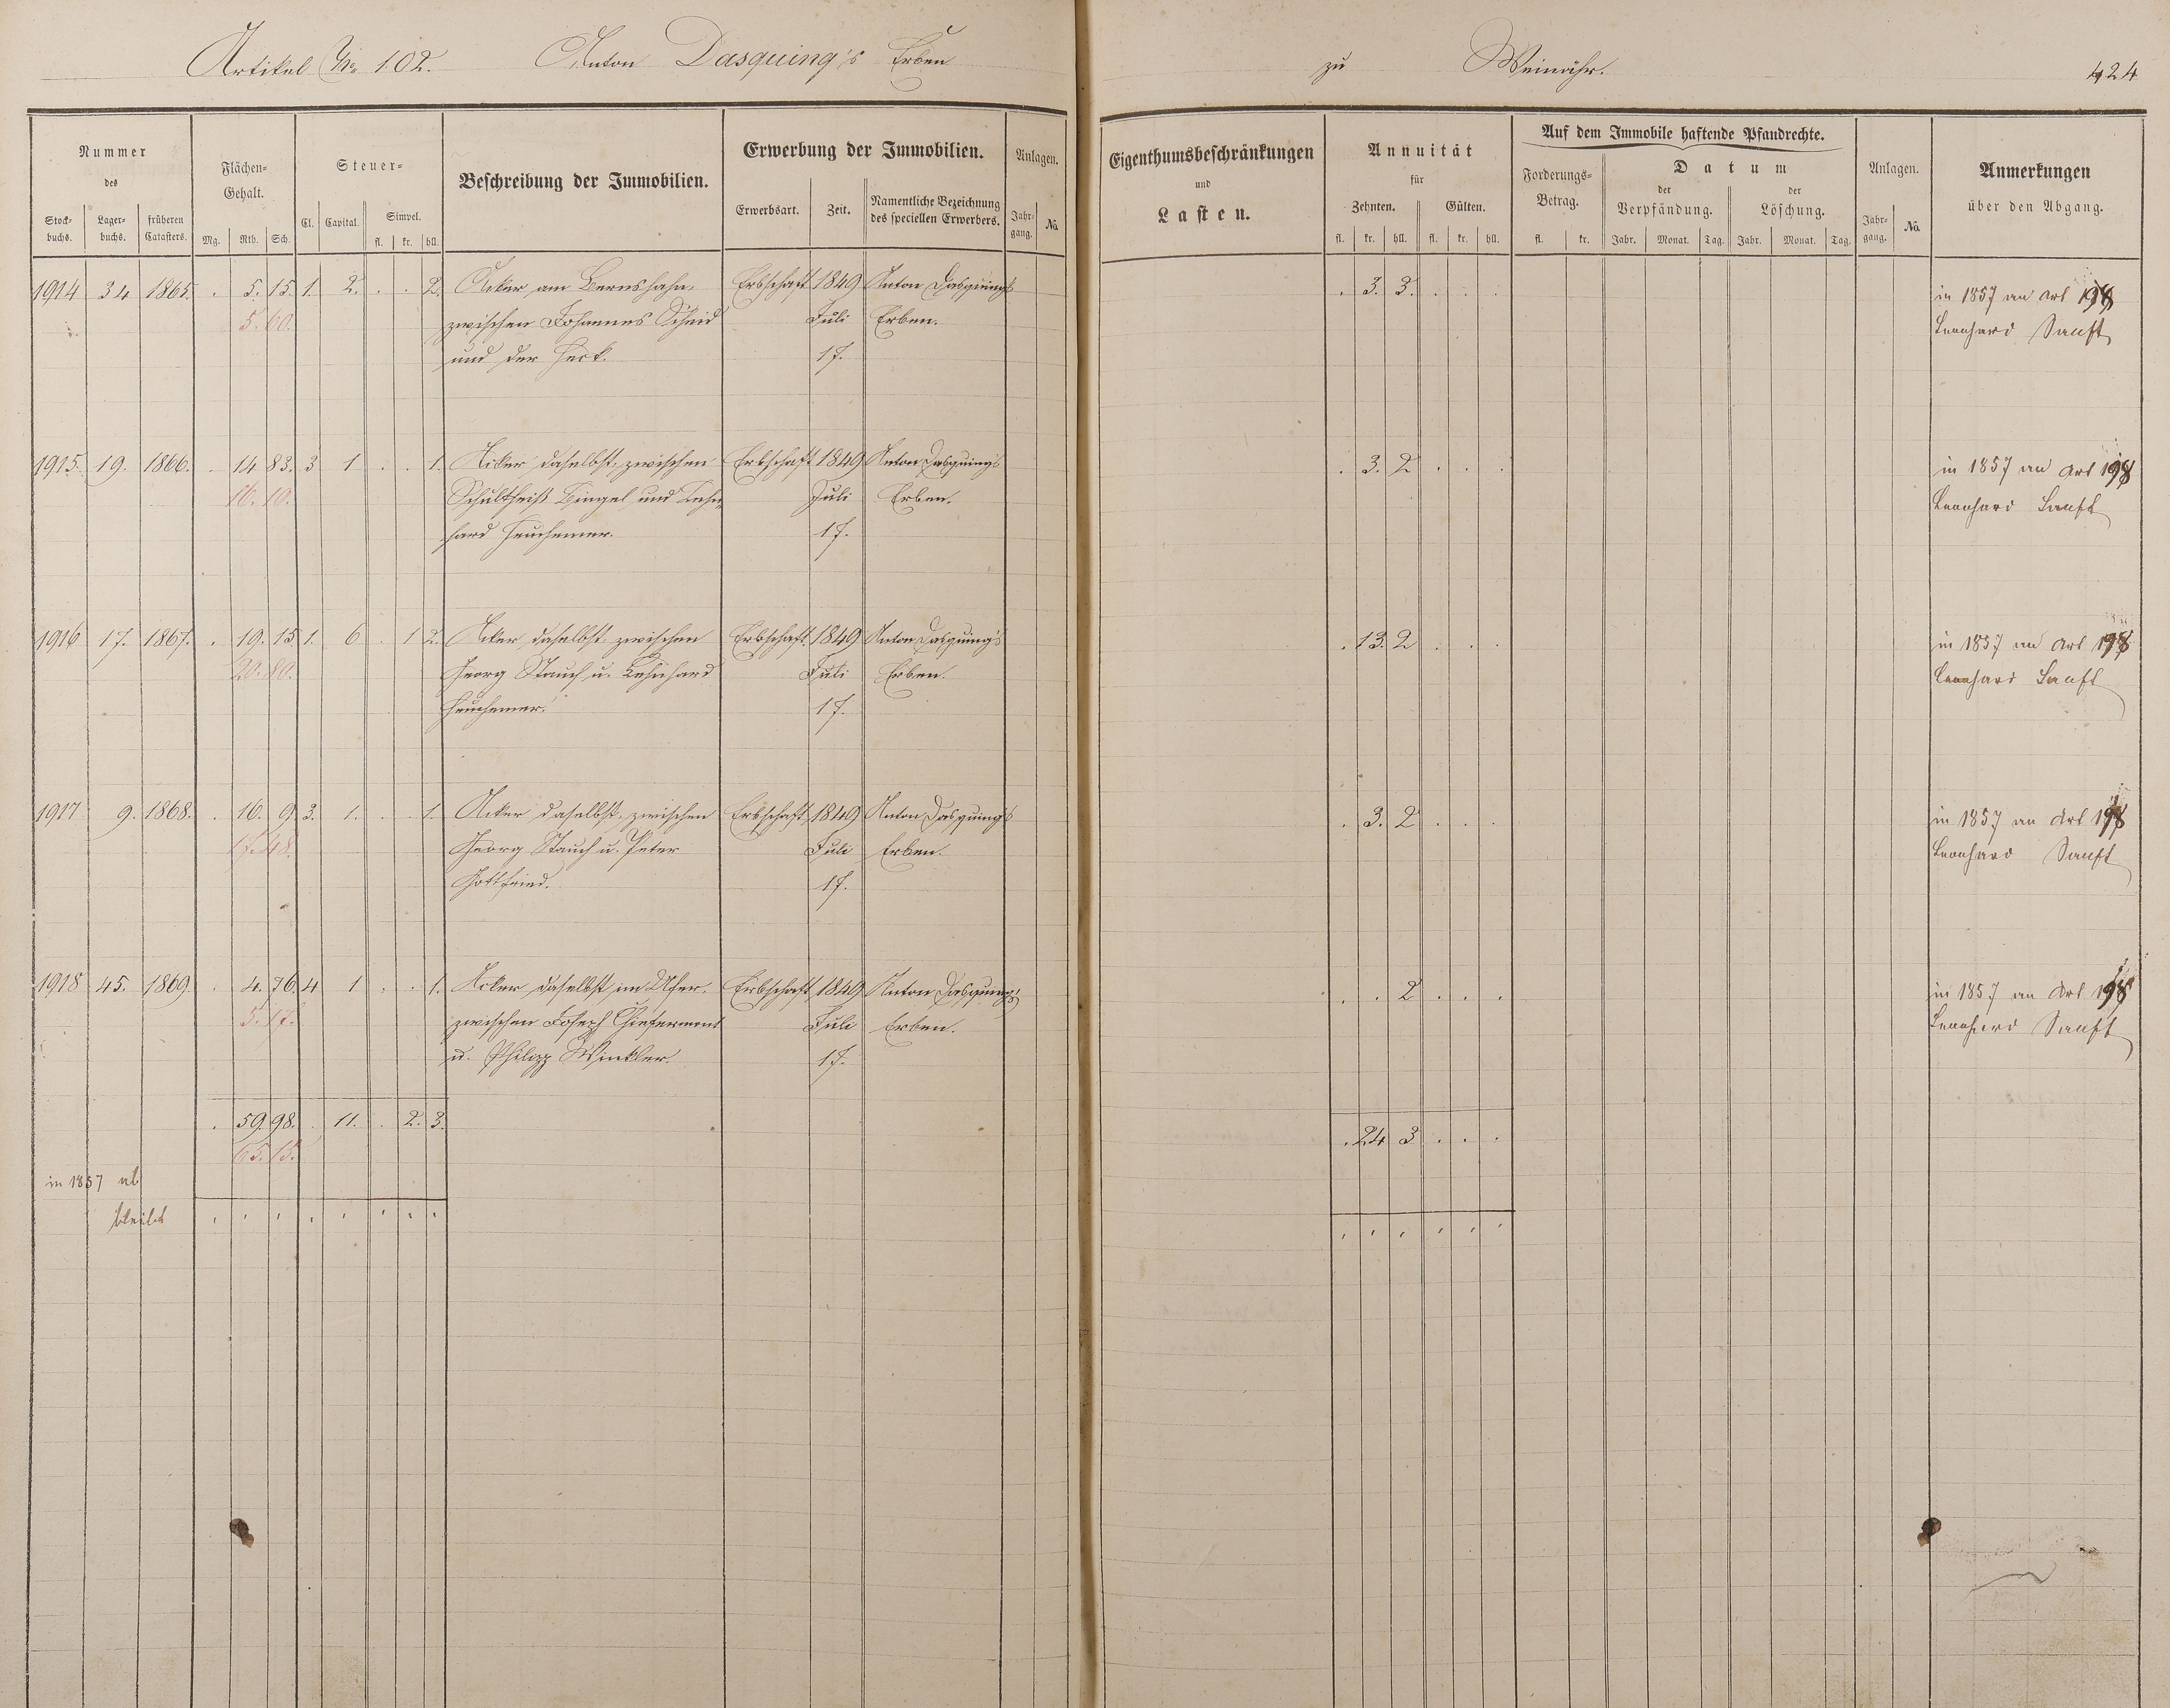 Artikel No 102. Anton Dasquing's Erben zu Weinähr. 424
Nummer des
Stock-buchs. Lager-buchs. früheren Catasters.
Flächen-Gehalt.
Mg. Rth. Sch.
Steuer-
Cl. Capital. Simpel.
fl. kr. hll.
Beschreibung der Immobilien.
Erwerbung der Immobilien.
Erwerbsart. Zeit. Namentliche Bezeichnung des speciellen Erwerbers.
Anlagen.
Jahr-gang. No.
Eigenthumsbeschränkungen
und
Lasten.
Annuität
für
Zehnten. Gülten.
fl. kr. hll. fl. kr. hll.
Auf dem Immobile haftende Pfandrechte.
Forderungs-Betrag.
fl. kr.
Datum
der Verpfändung. der Löschung.
Jahr. Monat. Tag. Jahr. Monat. Tag.
Anlagen.
Jahr-gang. No.
Anmerkungen
über den Abgang.
1914 34 1865. . 5. 15. 1. 2. . . 2. Acker am Bernshahn, Erbschaft 1849 Anton Dasquing's . 3. 3. . . . in 1857 an Art 198
5. 60. zwischen Johannes Scheid Juli Erben. Leonhard Sanft
und der Heck. 17.
1915. 19. 1866. . 14 83. 3 1 . . 1. Acker daselbst, zwischen Erbschaft 1849 Anton Dasquing's . 3. 2 . . . in 1857 an Art 198
16. 10. Schultheiß Bingel und Lehn- Juli Erben. Leonhard Sanft
hard Heuchemer. 17.
1916 17. 1867. . 19. 15 1. 6 . 1 2. Acker daselbst zwischen Erbschaft 1849 Anton Dasquing's . 13. 2 . . . in 1857 an Art 198
20. 80. Georg Stauch u. Lehnhard Juli Erben. Leonhard Sanft
Heuchemer. 17.
1917 9. 1868. . 16. 9. 3. 1. . . 1. Acker daselbst, zwischen Erbschaft 1849 Anton Dasquing's . 3. 2 . . . in 1857 an Art 198
17. 48. Georg Stauch u. Peter Juli Erben. Leonhard Sanft
Gottfried. 17.
1918 45. 1869. . 4. 76. 4 1 . . 1. Acker daselbst im Ufer. Erbschaft 1849 Anton Dasquing's . . 2 . . . in 1857 an Art 198
5. 17. zwischen Joseph Juli Erben. Leonhard Sanft
u. Philipp Winkler. 17.
. 59. 98. . 11. . 2. 3. . 24 3 . . .
65. 15.
in 1857 ab
bleibt